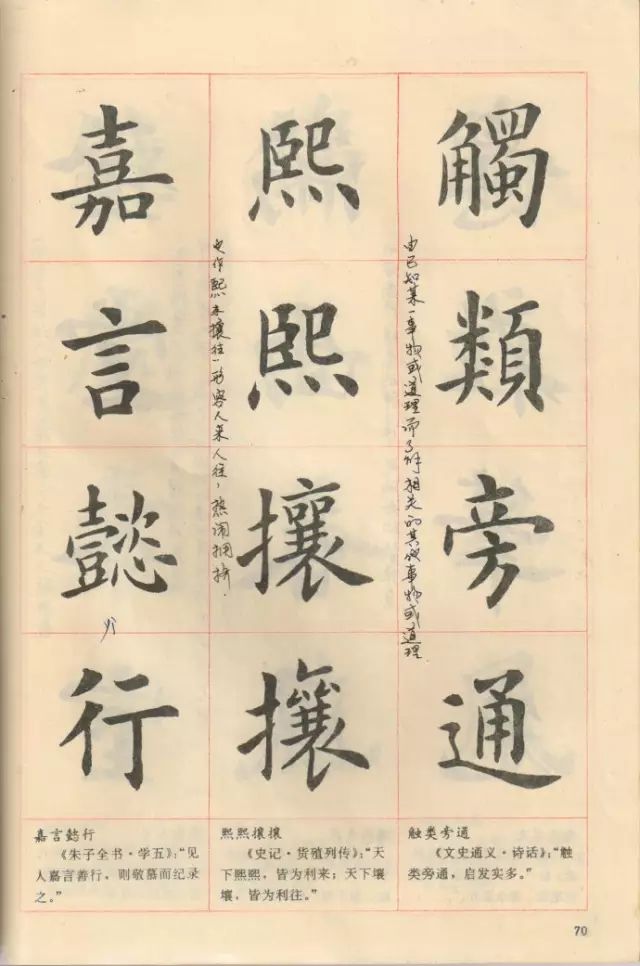 觸類旁通
由已知某一事物或道理而了解相关的其他事物或道理
熙熙攘攘
也作熙来攘往，形容人来人往，热闹拥挤．
嘉言懿行
yì
嘉言懿行
《朱子全书·学五》：“见
人嘉言善行，则敬慕而纪录
之。”
熙熙攘攘
《史记·货殖列传》：“天
下熙熙，皆为利来；天下壤
壤，皆为利往。”
触类旁通
《文史通义·诗话》：“触
类旁通，启发实多。”
70